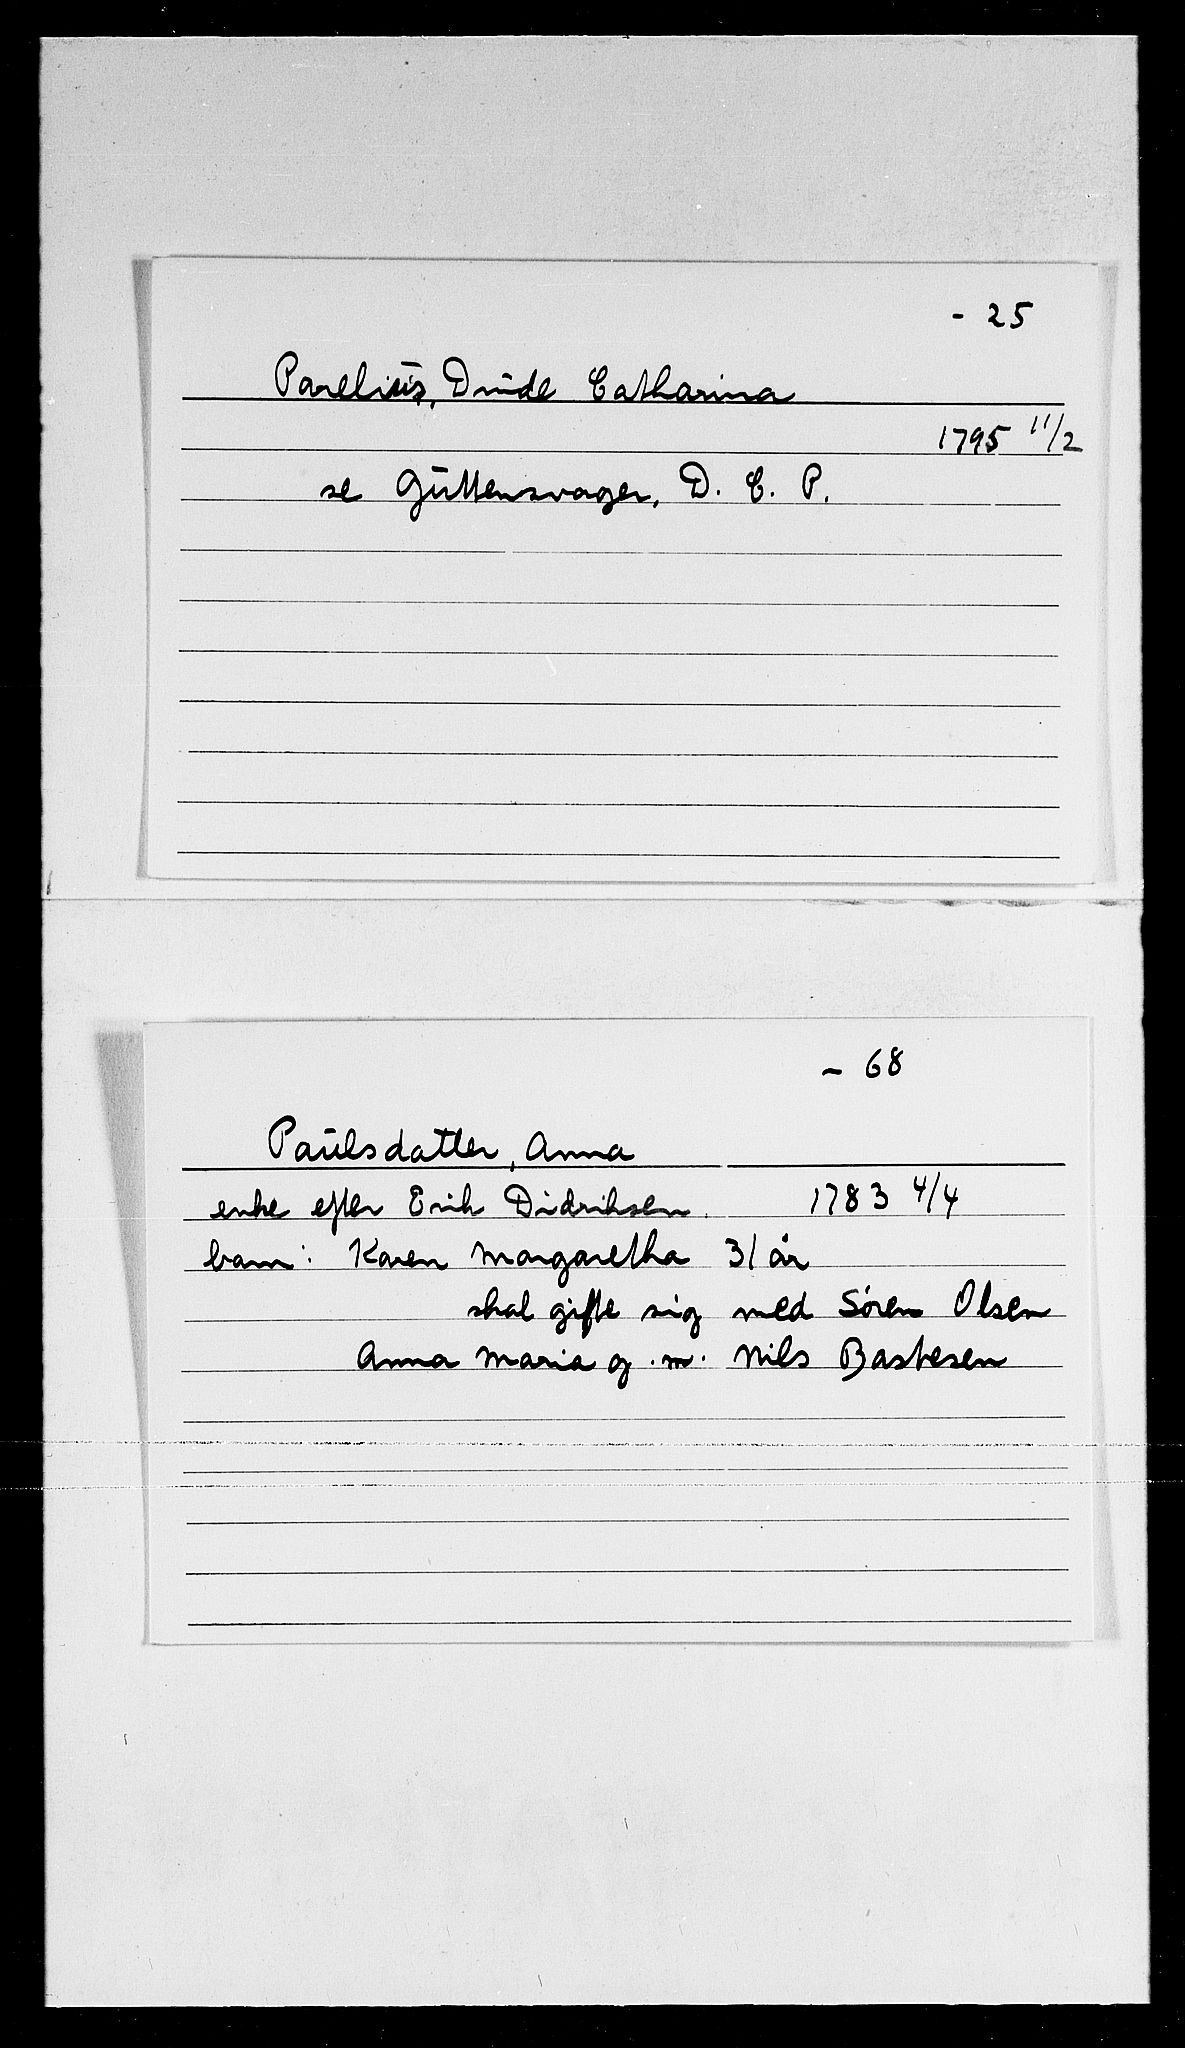 - 25
Parelius, Drude Catharina
1795 11/2
se Güttensvager, D. C. P.
- 68
Paulsdatter, Anna
enke efter Erik Didriksen. 1783 4/4
barn: Karen Margaretha 31 år
skal gifte sig med Sören Olsen
Anna Maria g.m. Nils Bastesen